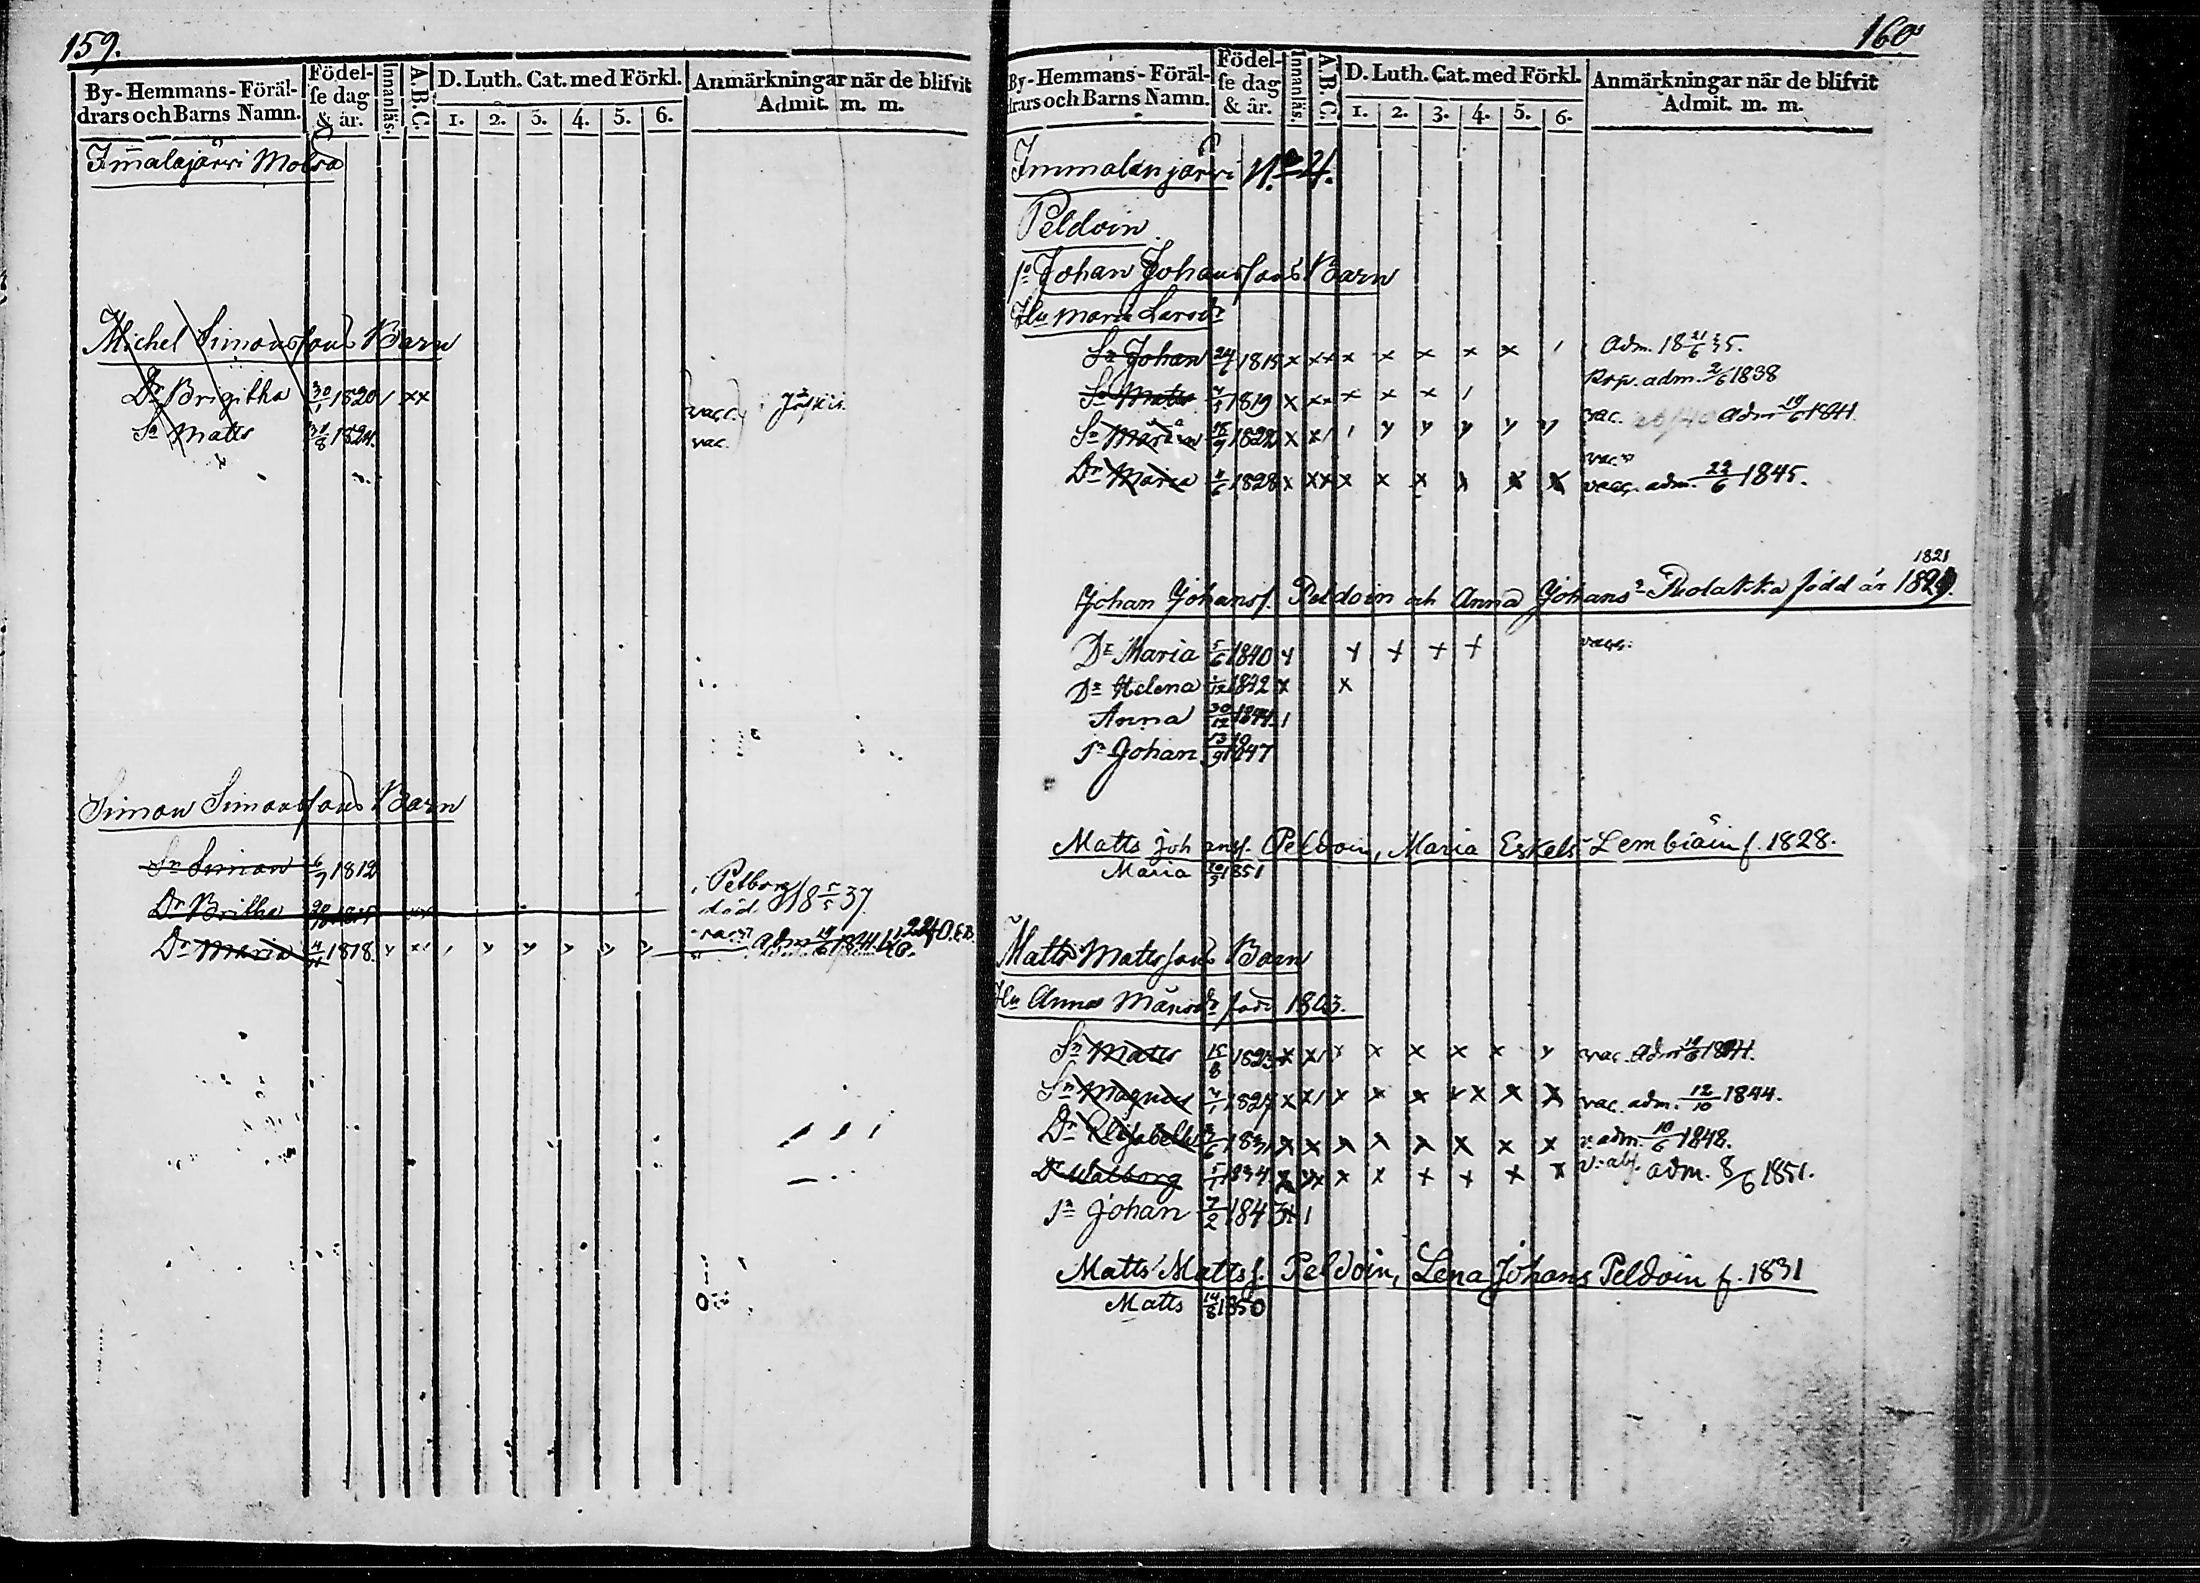 159.
By-Hemmans-Föräl-
drars och Barns Namn.
Födel-
se dag
& år.
Innanläs.
A.B.C.
D. Luth. Cat. med Förkl.
1. 2. 3. 4. 5. 6.
Anmärkningar när de blifvit
Admit. m. m.
Im̄alajärwi Molsa
Michel Simonssons Barn
Dr Brigitha 30/1 1820 1 xx vacc.
Sn Matts 31/8 1824. vac.
Simon Simonssons Barn
Sn Simon 6/9 1812
Petborg
Dr Britha död 18 5/5 37.
Dr Maria 4/11 1818 vacc
160
By-Hemmans-Föräl-
drars och Barns Namn.
Födel-
se dag
& år.
Innanläs.
A.B.C.
D. Luth. Cat. med Förkl.
1. 2. 3. 4. 5. 6.
Anmärkningar när de blifvit
Admit. m. m.
Immalanjärwi No 4.
Peldoin
1o Johan Johanssons Barn
Hu Maria Larsdr
Sn Johan 24/6 1815 x xx x x x x x 1 Adm. 18 21/6 35.
Sn Matts 1819 x xx x x x 1 Rep. adm. 2/6 1838
Sn Martin 15/9 1822 x x1 1 y y y y y vac. adm 19/6 1841.
Dr Maria 1828 x xx x x x x x x vacc. adm. 22/6 1845.
1821
Johan Johanss. Peldoin och Anna Johans Dr Puolakka född år 1829.
Dr Maria 5/6 1840 y y + + + vacc.
Dr Helena 1842 x x
Anna 30/12 1844. 1
Sn Johan 13/9 1847
Matts Johanss. Peldoin, Maria Eskels Lembiäin f. 1828.
Maria 1851
Matts Mattssons Barn
Hu Anna Månsdr född 1803.
Sn Matts 15/8 1823 x x1 x x x x x y vac. Adm 19/6 1841.
Sn Magnus 1827 x x1 x x x x x x x vac. adm. 12/10 1844.
Dr Elisabeth 1831 x x x x x x x x v. adm. 10/6 1848.
Dr Walborg 1834 x xx x x + + x x adm. 8/6 1851.
Sn Johan 7/2 1843 x 1
Matts Mattss. Peldoin, Lena Johans Peldoin f. 1831
Matts 14/8 1850